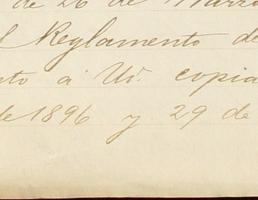 de 26 de Marzo
Reglamento de
to a Ud. copia
de 1896 y 29 de